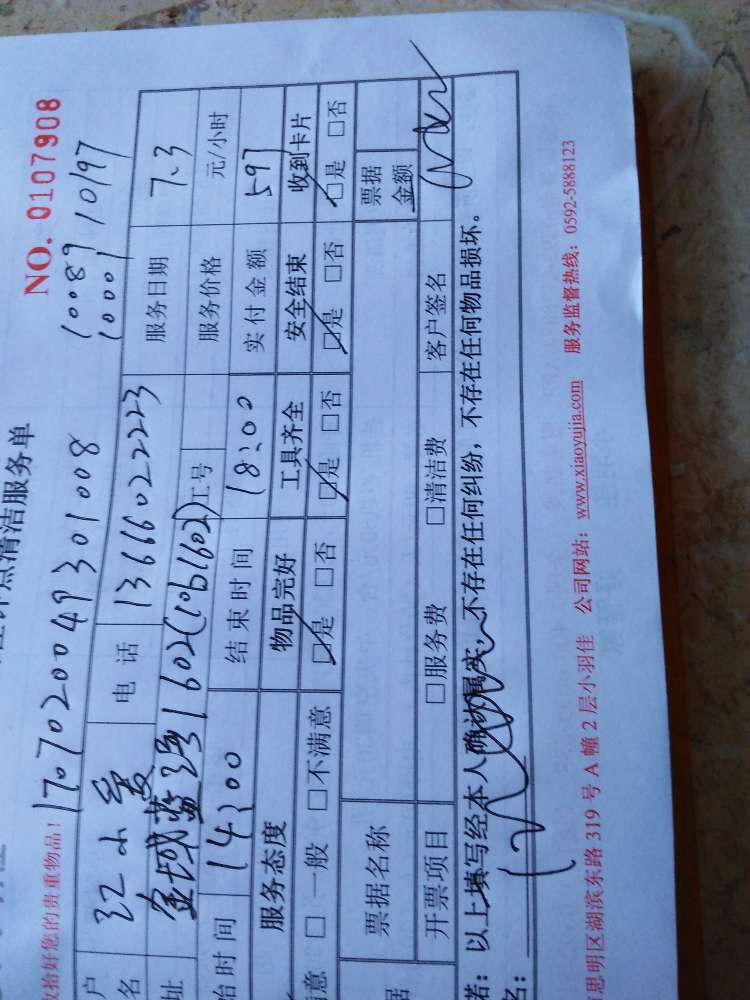 钟点清洁服务单
NO. 0107908
收拾好您的贵重物品！ 1707020049301008
10089 10197
10001
户名 江小爱 电话 13666022223 服务日期 7.3
址 金域蓝湾1602(1061602) 工号 服务价格 元/小时
始时间 14:00 结束时间 18:00 实付金额 597
服务态度 物品完好 工具齐全 安全结束 收到卡片
意 □一般 □不满意 □是 □否 □是 □否 □是 □否 □是 □否
据 票据名称 票据金额
开票项目 □服务费 □清洁费 客户签名
诺：以上填写经本人确认属实，不存在任何纠纷，不存在任何物品损坏。
名：
思明区湖滨东路 319 号 A 幢 2 层小羽佳 公司网站：www.xiaoyujia.com 服务监督热线：0592-5888123